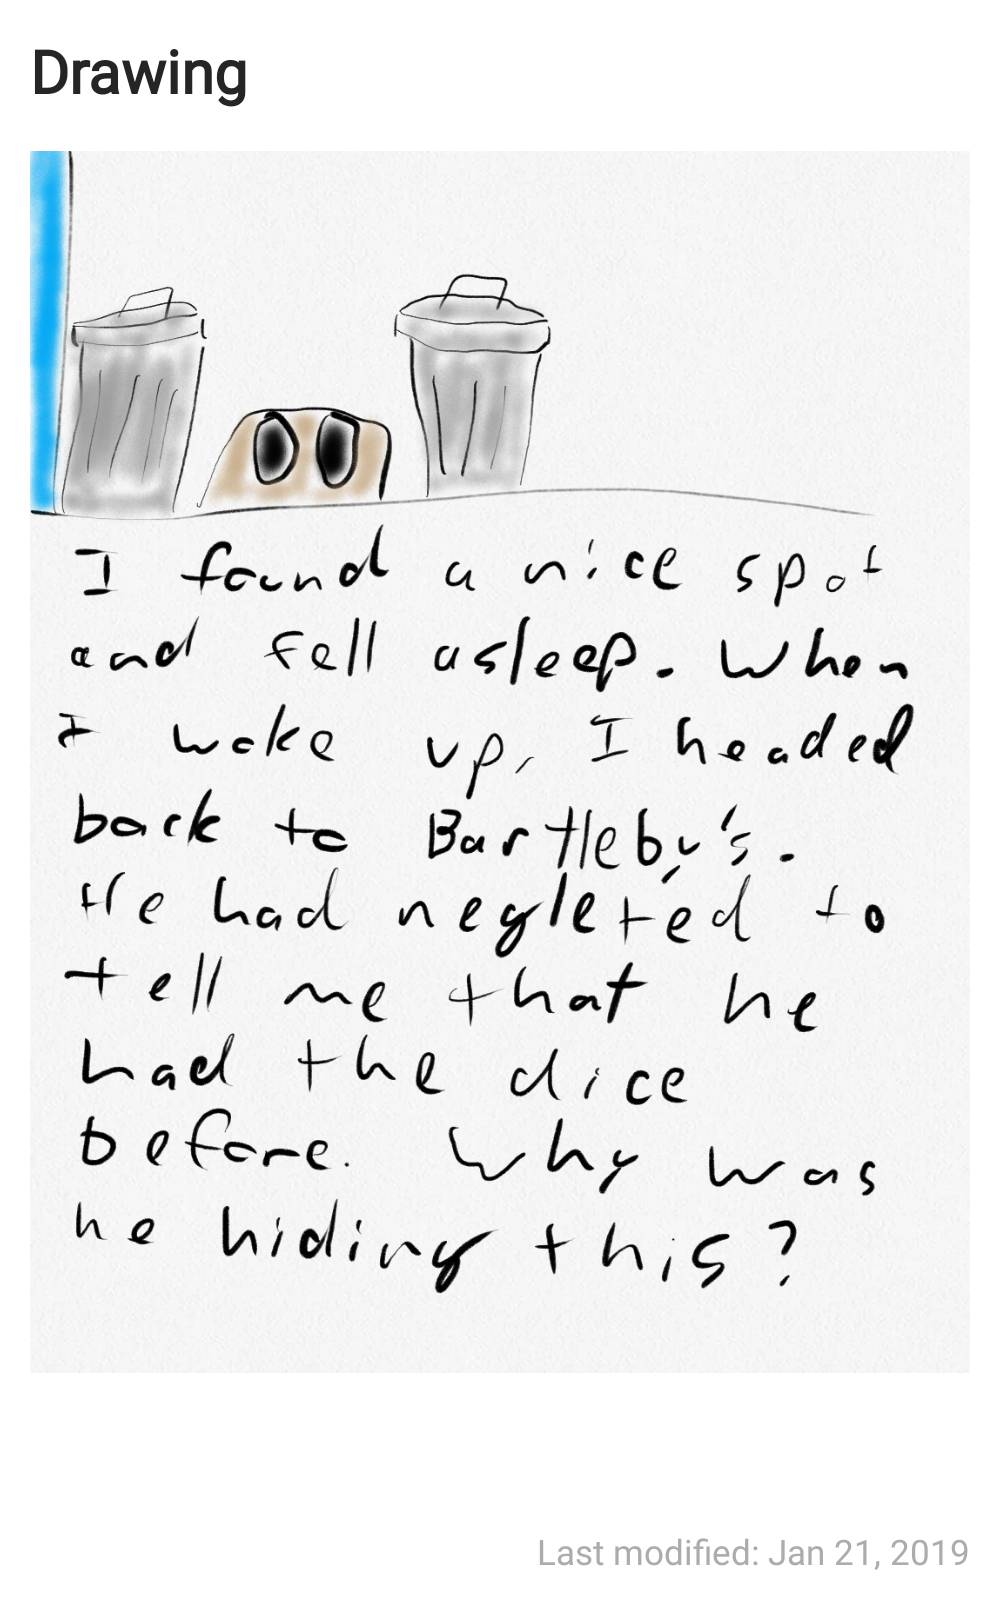 Drawing
I found a nice spot
and fell asleep. When
I woke up, I headed
back to Bartleby's.
He had negleted to
tell me that he
had the dice
before. Why was
he hiding this?
Last modified: Jan 21, 2019